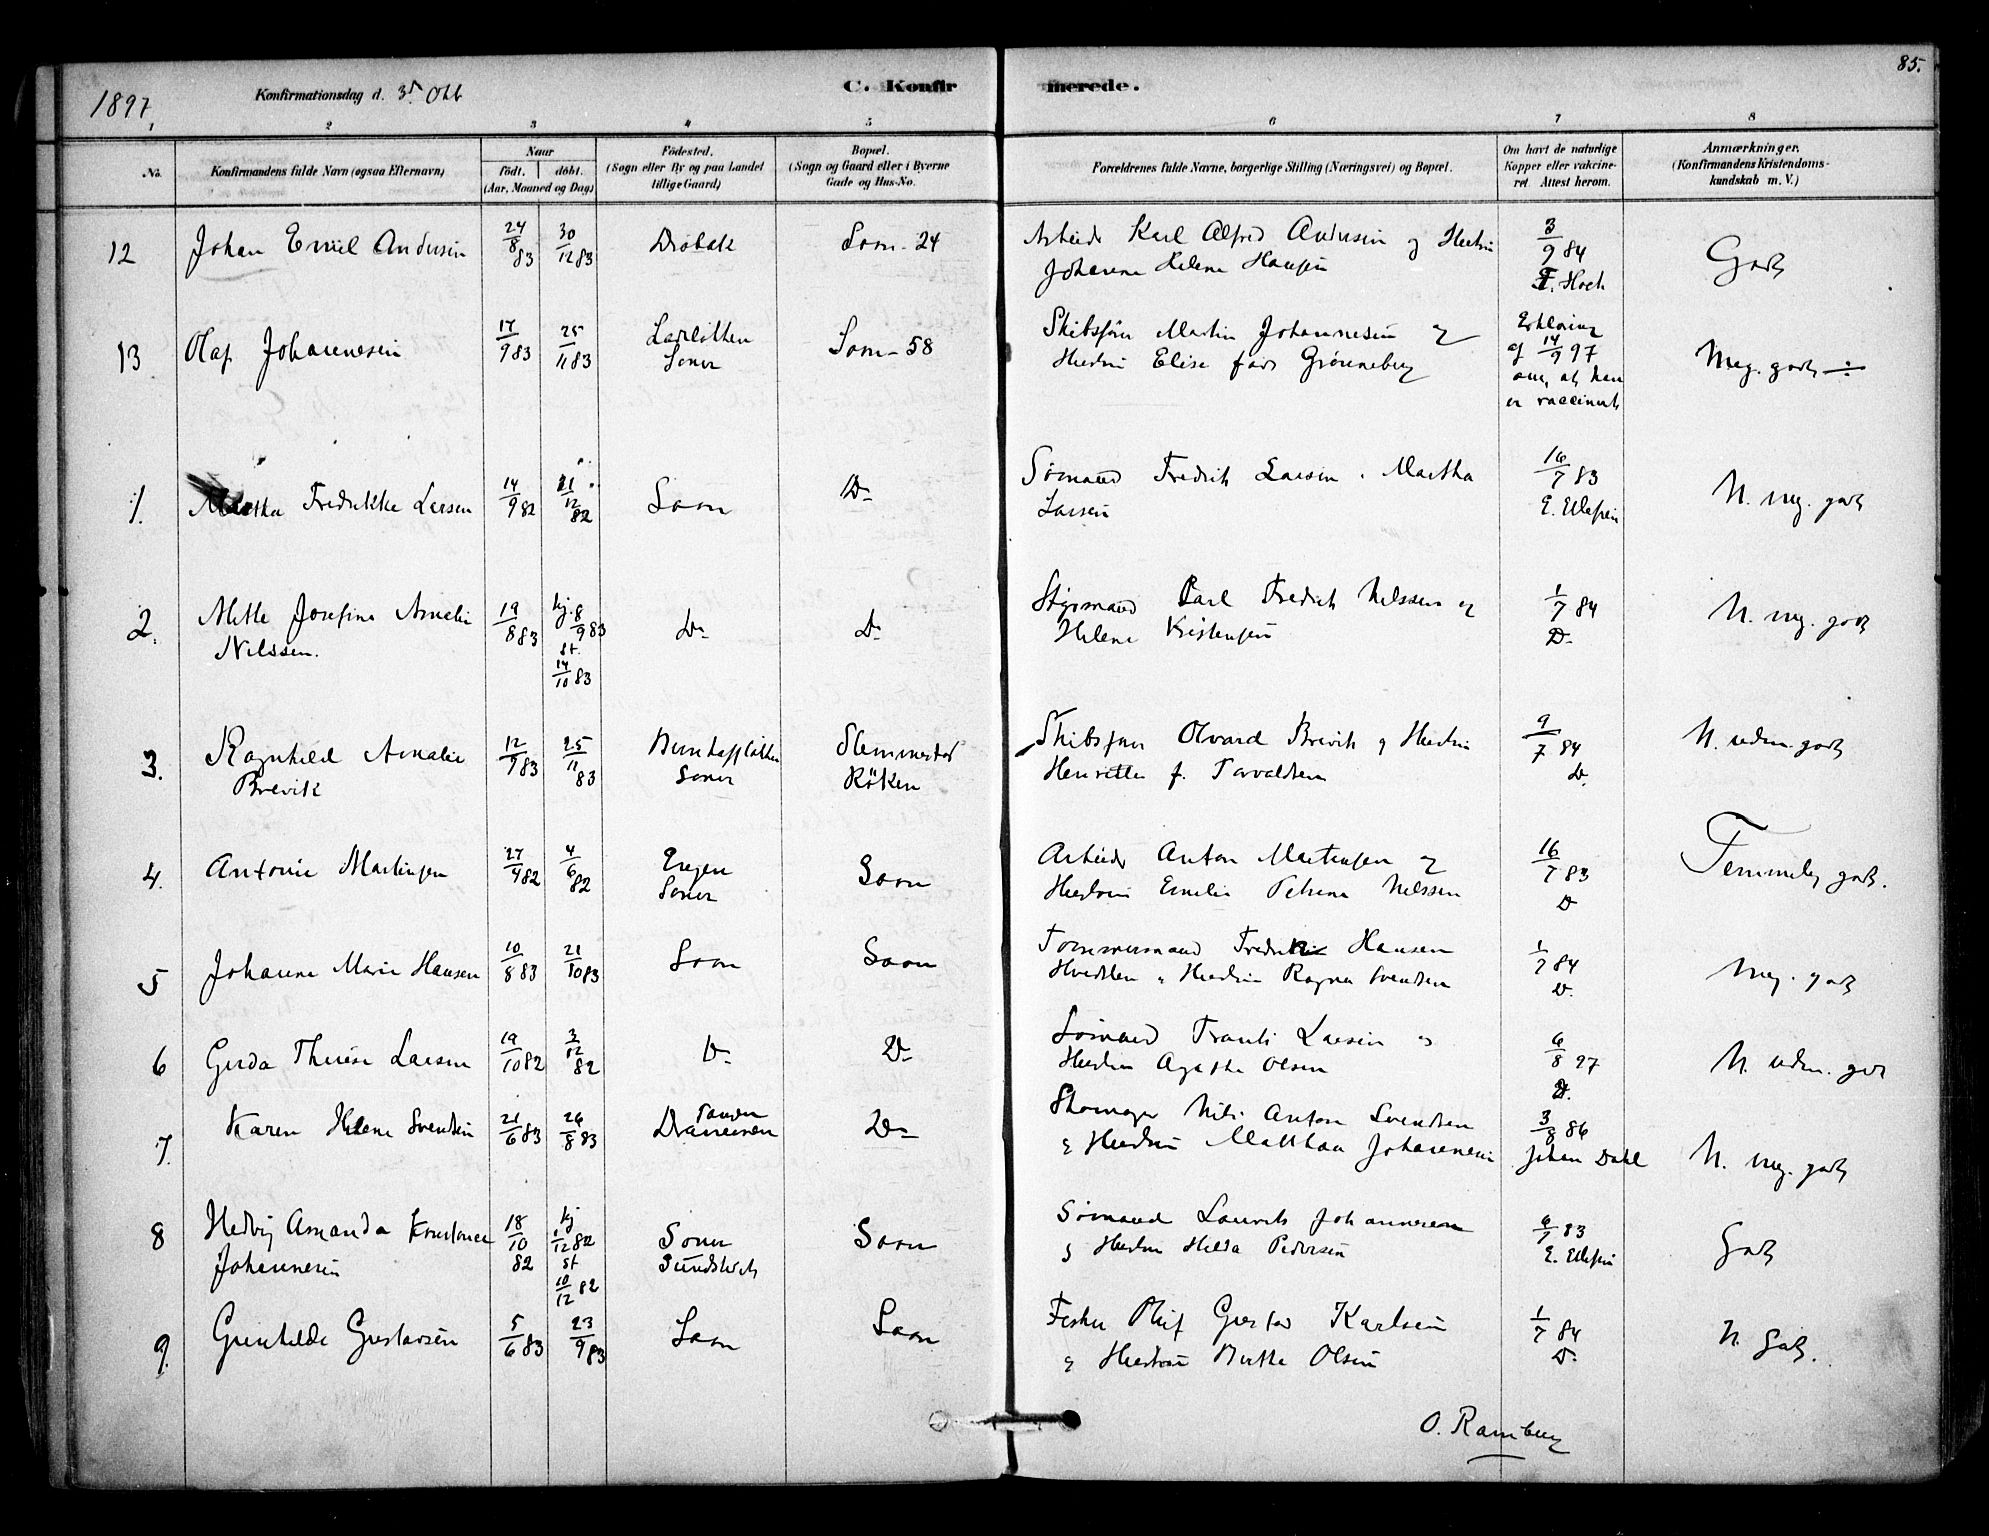 85.
1897 Konfirmationsdag d. 3die Oktb C. Konfirmerede.
1 2 3 4 5 6 7 8
No. Konfirmandens fulde Navn (ogsaa Efternavn) Naar født. døbt. (Aar, Maaned og Dag) Fødested. (Sogn eller By og paa Landet tillige Gaard) Bopæl. (Sogn og Gaard eller i Byerne Gade og Hus-No. Forældrenes fulde Navne, borgerlige Stilling (Næringsvei) og Bopæl. Om havt de naturlige Kopper eller vakcineret. Attest herom. Anmærkninger. (Konfirmandens Kristendomskundskab m. V.)
12 Johan Emil Andersen 24/8 83 30/12 83 Drøbak Soon - 24 Arbeider Karl Alfred Andersen og Hustru
Johanne Helene Hansen 3/9 84 F. Hoch Godt
13 Olaf Johannesen 17/9 83 25/11 83 Soner Soon - 58 Skibsfører Martin Johannesen og
Hustru Elise født Grønneberg Erklæring af 14/9 97 om, at han er vaccinert Meg. godt ÷
1. Martha Fredrikke Larsen 14/9 82 21/12 82 Soon Do Sømand Fredrik Larsen . Martha
Larsen 16/7 83 E. Ellefsen N. meg. godt
2. Mette Josefine Amalie
Nilssen. 19/8 83 hj. 8/9 83 st. 14/10 83 Do Do Styrmand Carl Fredrik Nilssen og
Helene Kristensen 1/7 84 Do N. meg. godt
3. Ragnhild Amalie
Brevik 12/9 83 25/11 83 Soner Slemmestad
Røken Skibsfører Olvard Brevik og Hustru
Henriette f. Torvaldsen 9/7 84 Do N. udm. godt
4. Antonie Martinsen 27/4 82 4/6 82 Engen
Soner Soon Arbeider Anton Martinsen og
Hustru Emilie Petrine Nilssen 16/7 83 Do Temmelig godt.
5 Johanne Marie Hansen 10/8 83 21/10 83 Soon Soon Tømmermand Fredrik Hansen
Hvidsten og Hustru Ragna Svendsen 1/7 84 Do. Meg. godt
6 Gerda Therese Larsen 19/10 82 3/12 82 Do Do Sømand Frants Larsen og
Hustru Agathe Olsen 6/8 97 Do. N. udm. godt
7. Karen Helene Svendsen 21/6 83 26/8 83 Drammen Do Skomager Nils Anton Svendsen
og Hustru Matthea Johannesen 3/8 86 Johan Dahl N. meg. godt
8 Hedvig Amanda Konstance
Johannesen 18/10 82 hj 1/12 82 st 10/12 82 Soner
Sundstreet Soon Sømand Laurits Johannesen
og Hustru Hilda Pedersen 6/7 83 E. Ellefsen Godt
9. Gunhilde Gustavsen 5/6 83 23/9 83 Soon Soon Fisker Oluf Gustav Karlsen
og Hustru Birthe Olsen 1/7 84 Do. N. Godt.
O. Ramberg